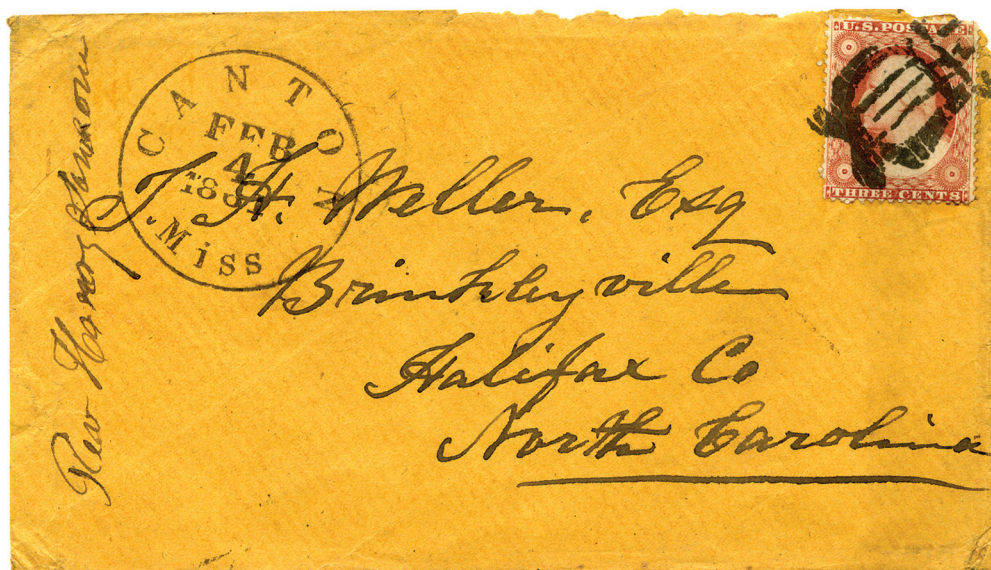 Rev Henry Sansom
CANTON
FEB
4
Miss
U.S. POSTAGE
THREE CENTS
J. H. Weller, Esq
Brinkleyville
Halifax Co
North Carolina